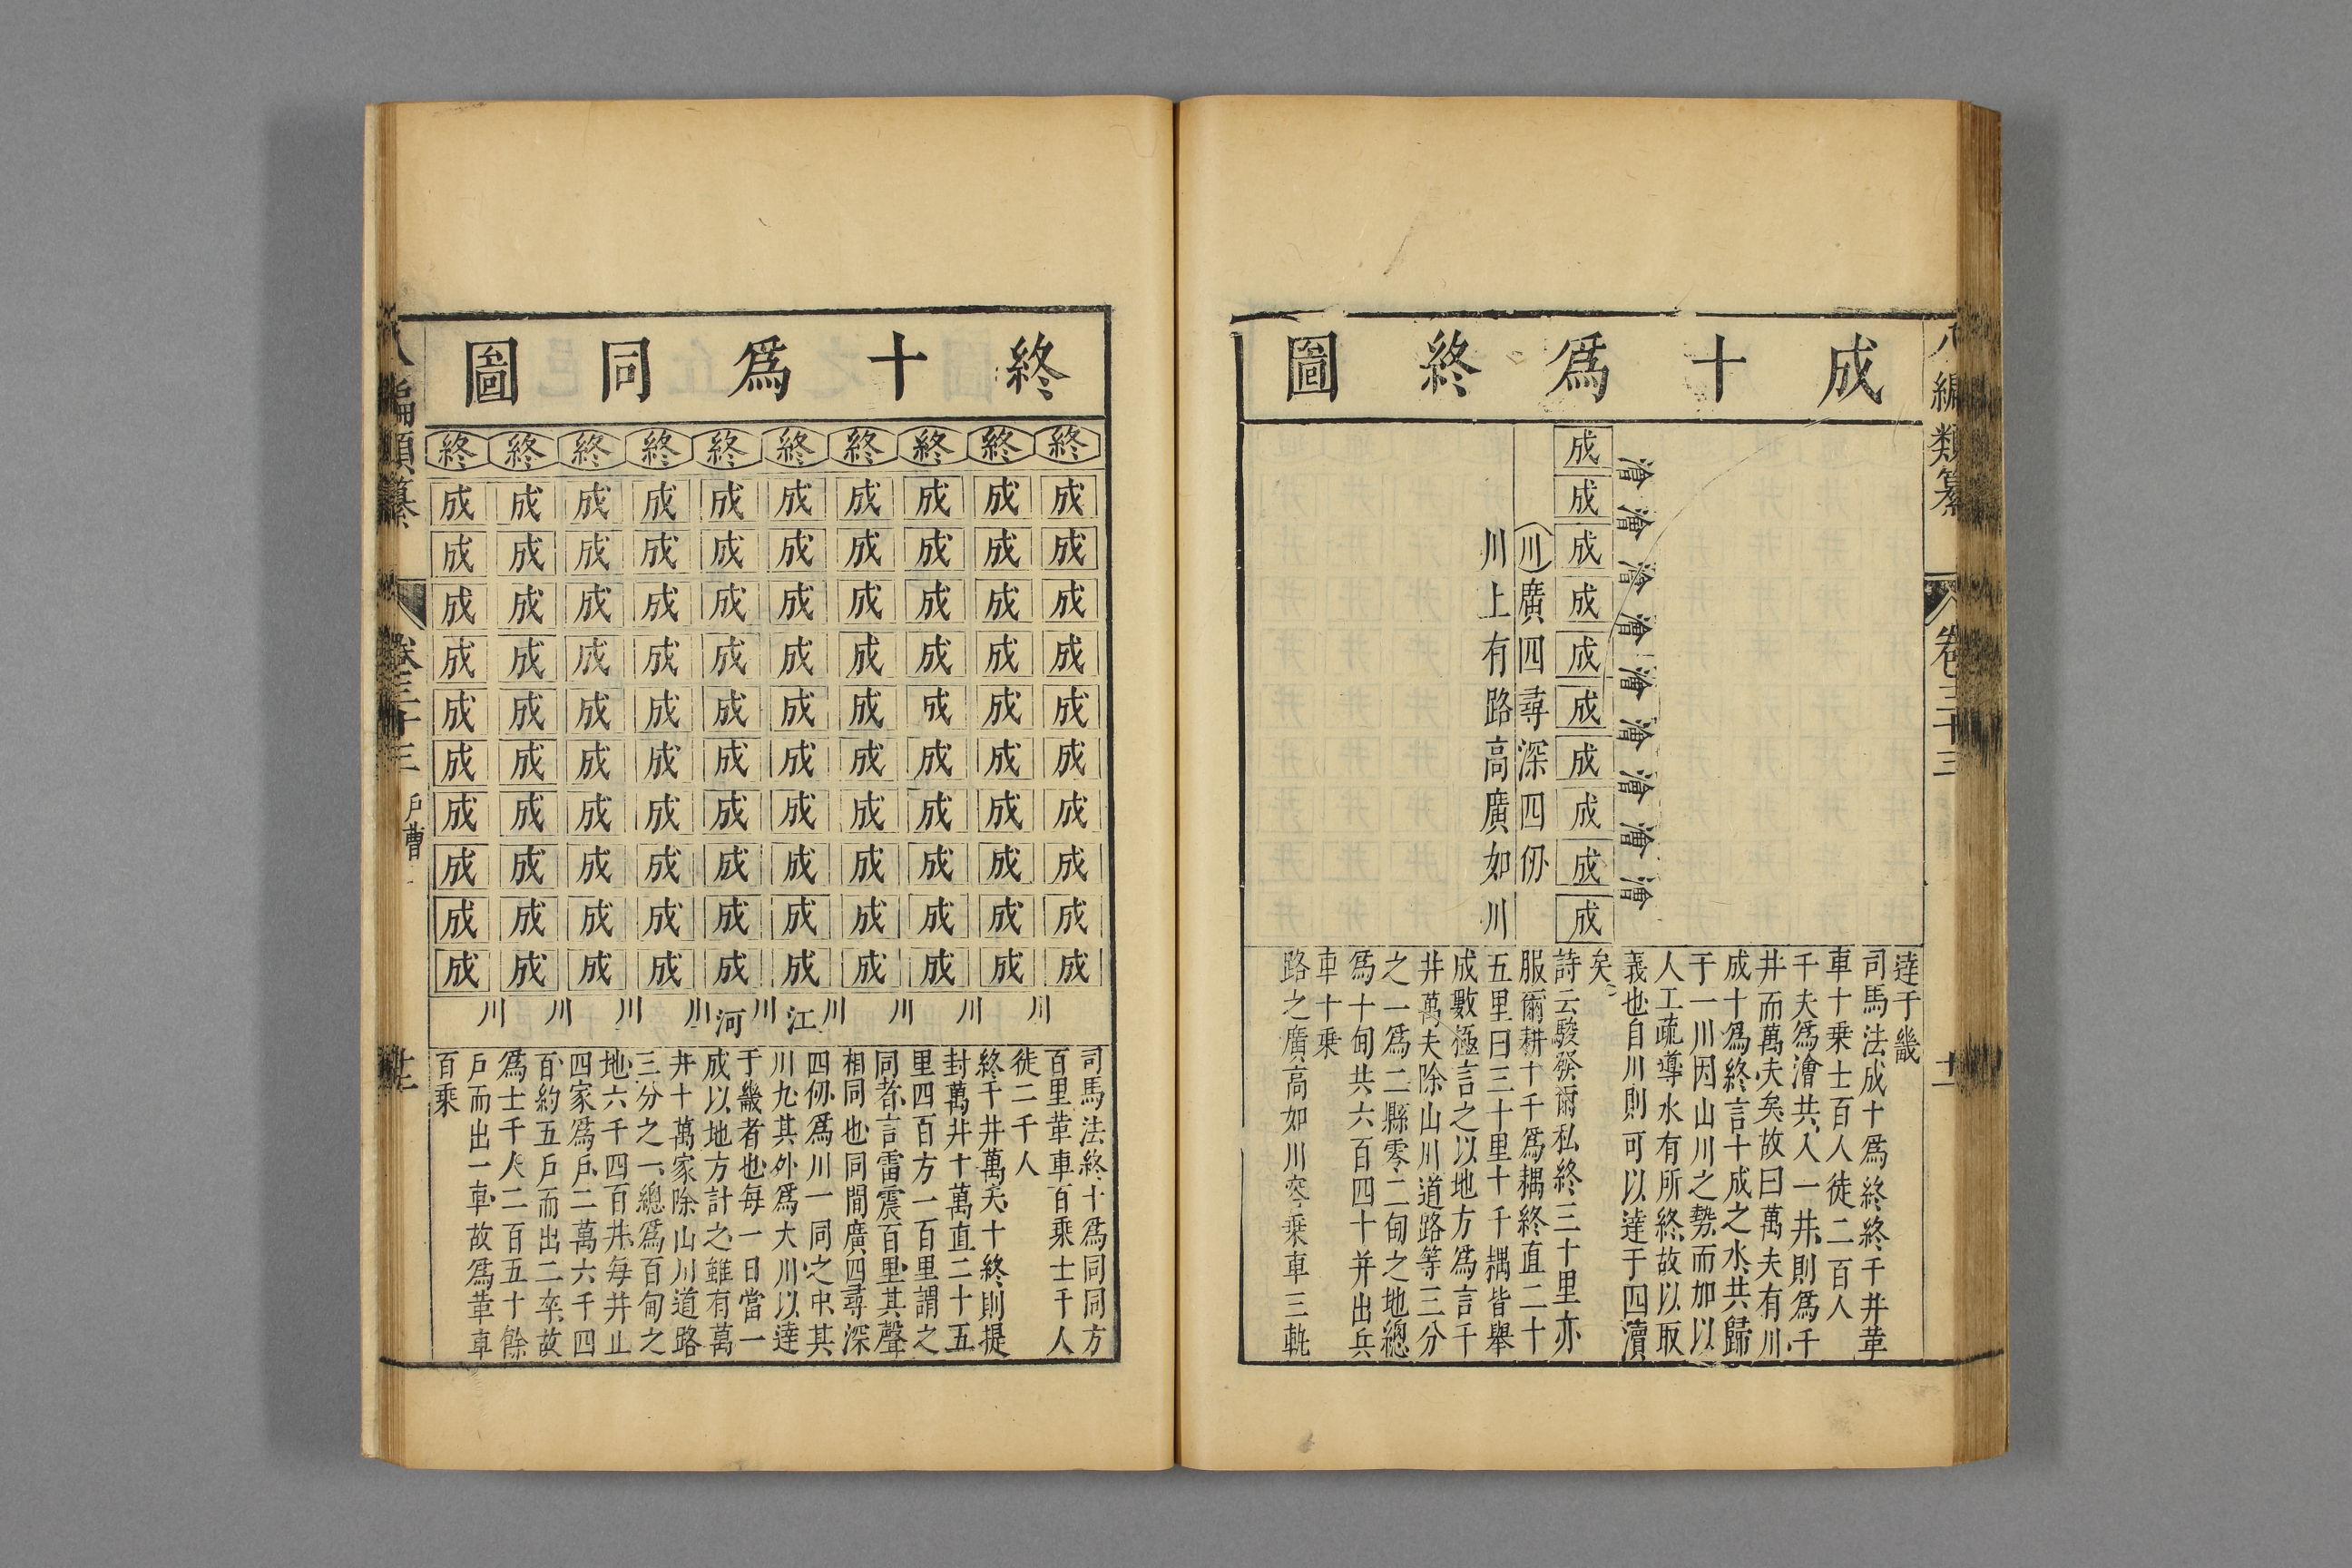 八編類纂
卷三十三
十一
成十爲終圖
澮澮澮澮澮澮澮澮澮
成成成成成成成成成成
川廣四尋深四仞
川上有路高廣如川
達于畿
司馬法成十爲終終千井革
車十乗士百人徒二百人
千夫爲澮共入一井則爲千
井而萬夫矣故曰萬夫有川
成十爲終言十成之水共歸
于一川因山川之勢而加以
人工疏導水有所終故以取
義也自川則可以達于四瀆
矣
詩云駿發爾私終三十里亦
服爾耕十千爲耦終直二十
五里曰三十里十千耦皆舉
成數極言之以地方爲言千
井萬夫除山川道路等三分
之一爲二縣零二甸之地總
爲十甸共六百四十井出兵
車十乗
路之廣高如川容乗車三軌
終十爲同圖
終終終終終終終終終終
成成成成成成成成成成
成成成成成成成成成成
成成成成成成成成成成
成成成成成成成成成成
成成成成成成成成成成
成成成成成成成成成成
成成成成成成成成成成
成成成成成成成成成成
成成成成成成成成成成
成成成成成成成成成成
川川川川江川河川川川川
司馬法終十爲同同方
百里革車百乗士千人
徒二千人
終千井萬夫十終則提
封萬井十萬直二十五
里四百方一百里謂之
同者言雷震百里其聲
相同也同間廣四尋深
四仞爲川一同之中其
川九其外爲大川以達
于畿者也每一日當一
成以地方計之雖有萬
井十萬家除山川道路
三分之一總爲百甸之
地六千四百井每井止
四家爲戶二萬六千四
百約五戶而出二卒故
爲士千人二百五十餘
戶而出一車故爲革車
百乗
八編類纂
卷三十三
戶曹
十一